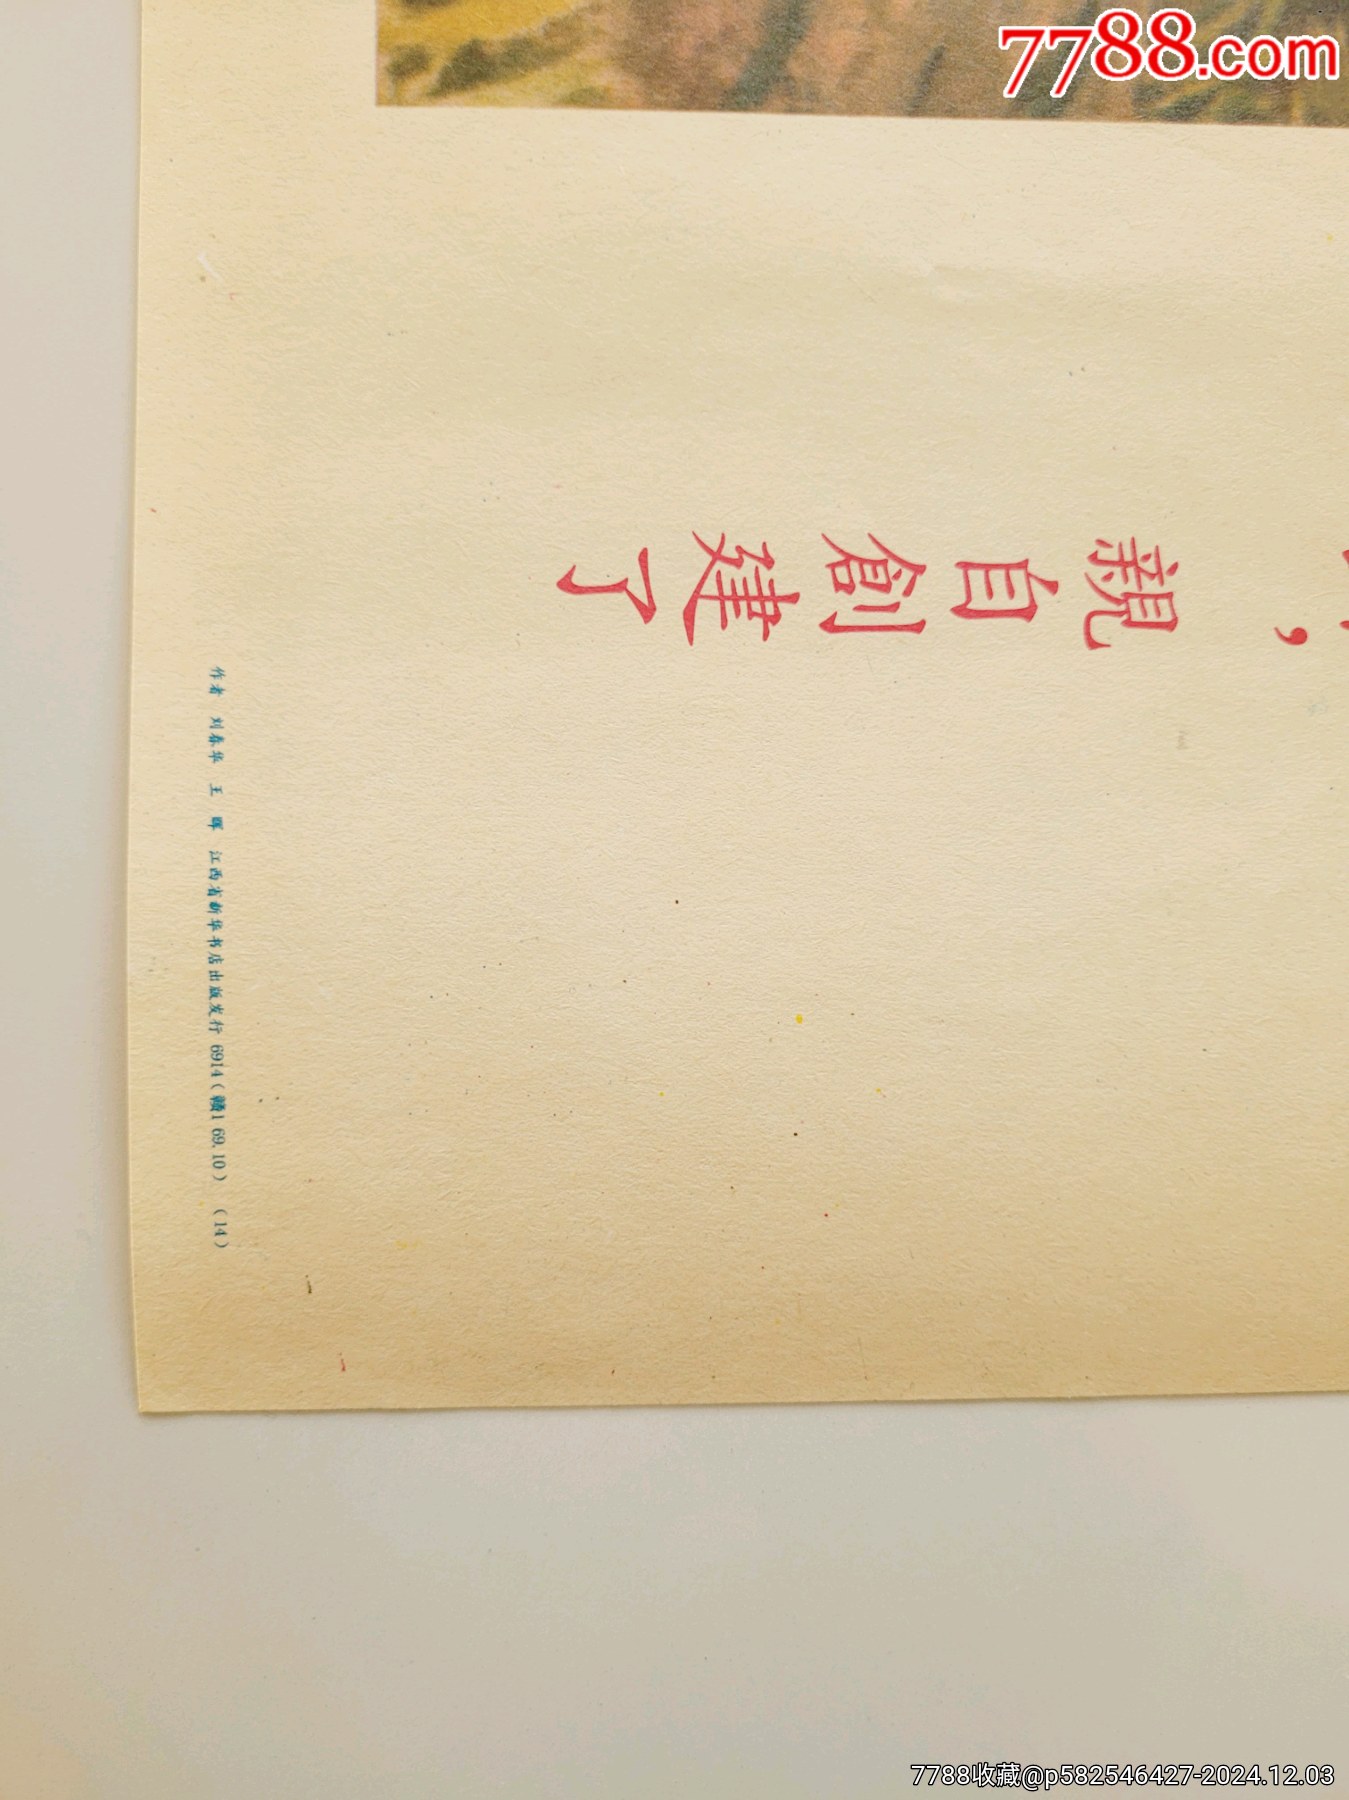 7788.com
，親自創建了
作者 刘春华 王晖 江西省新华书店出版发行 6914(赣1 69.10) (14)
7788收藏@p582546427-2024.12.03